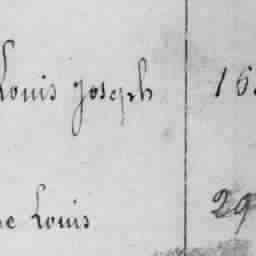 Louis Joseph 16
Louis 29